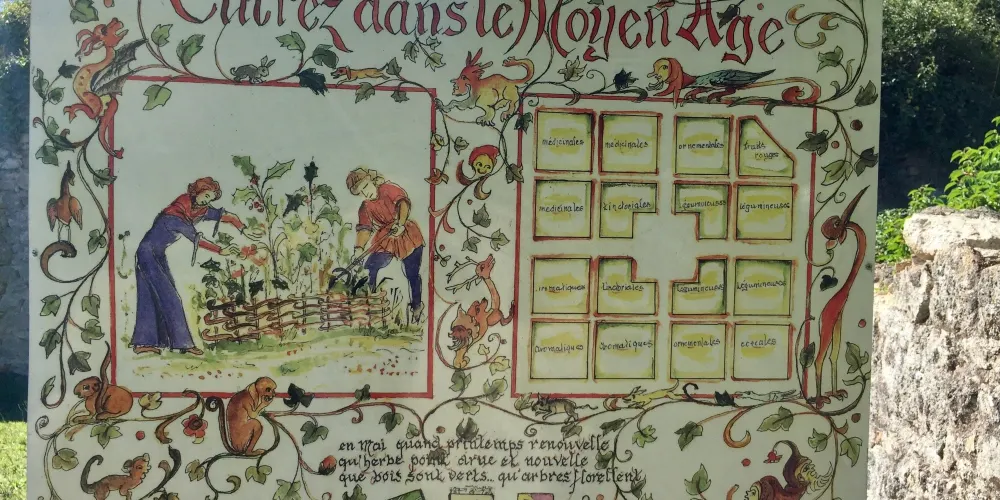 Entrez dans le Moyen Age
médicinales médicinales ornementales fruits rouges
médicinales légumineuses légumineuses
aromatiques légumineuses légumineuses
aromatiques aromatiques ornementales céréales
en Mai quand printemps renouvelle
qu'herbe point drue et nouvelle
que bois sont verts.. qu'arbres florettent